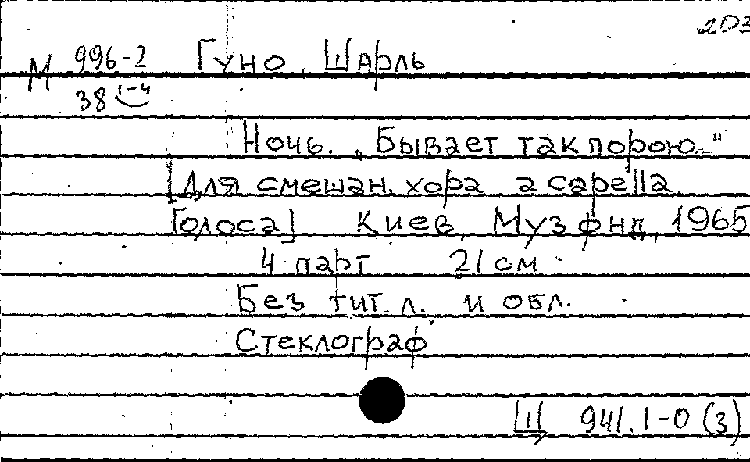 203
М 996-2 Гуно, Шарль
38 1-4
Ночь. „Бывает так порою..."
[Для смешан. хора a capella.
Голоса] Киев, Музфнд, 1965
4 парт 21 см.
Без тит. л. и обл.
Стеклограф
Ш 941.1-0 (3)